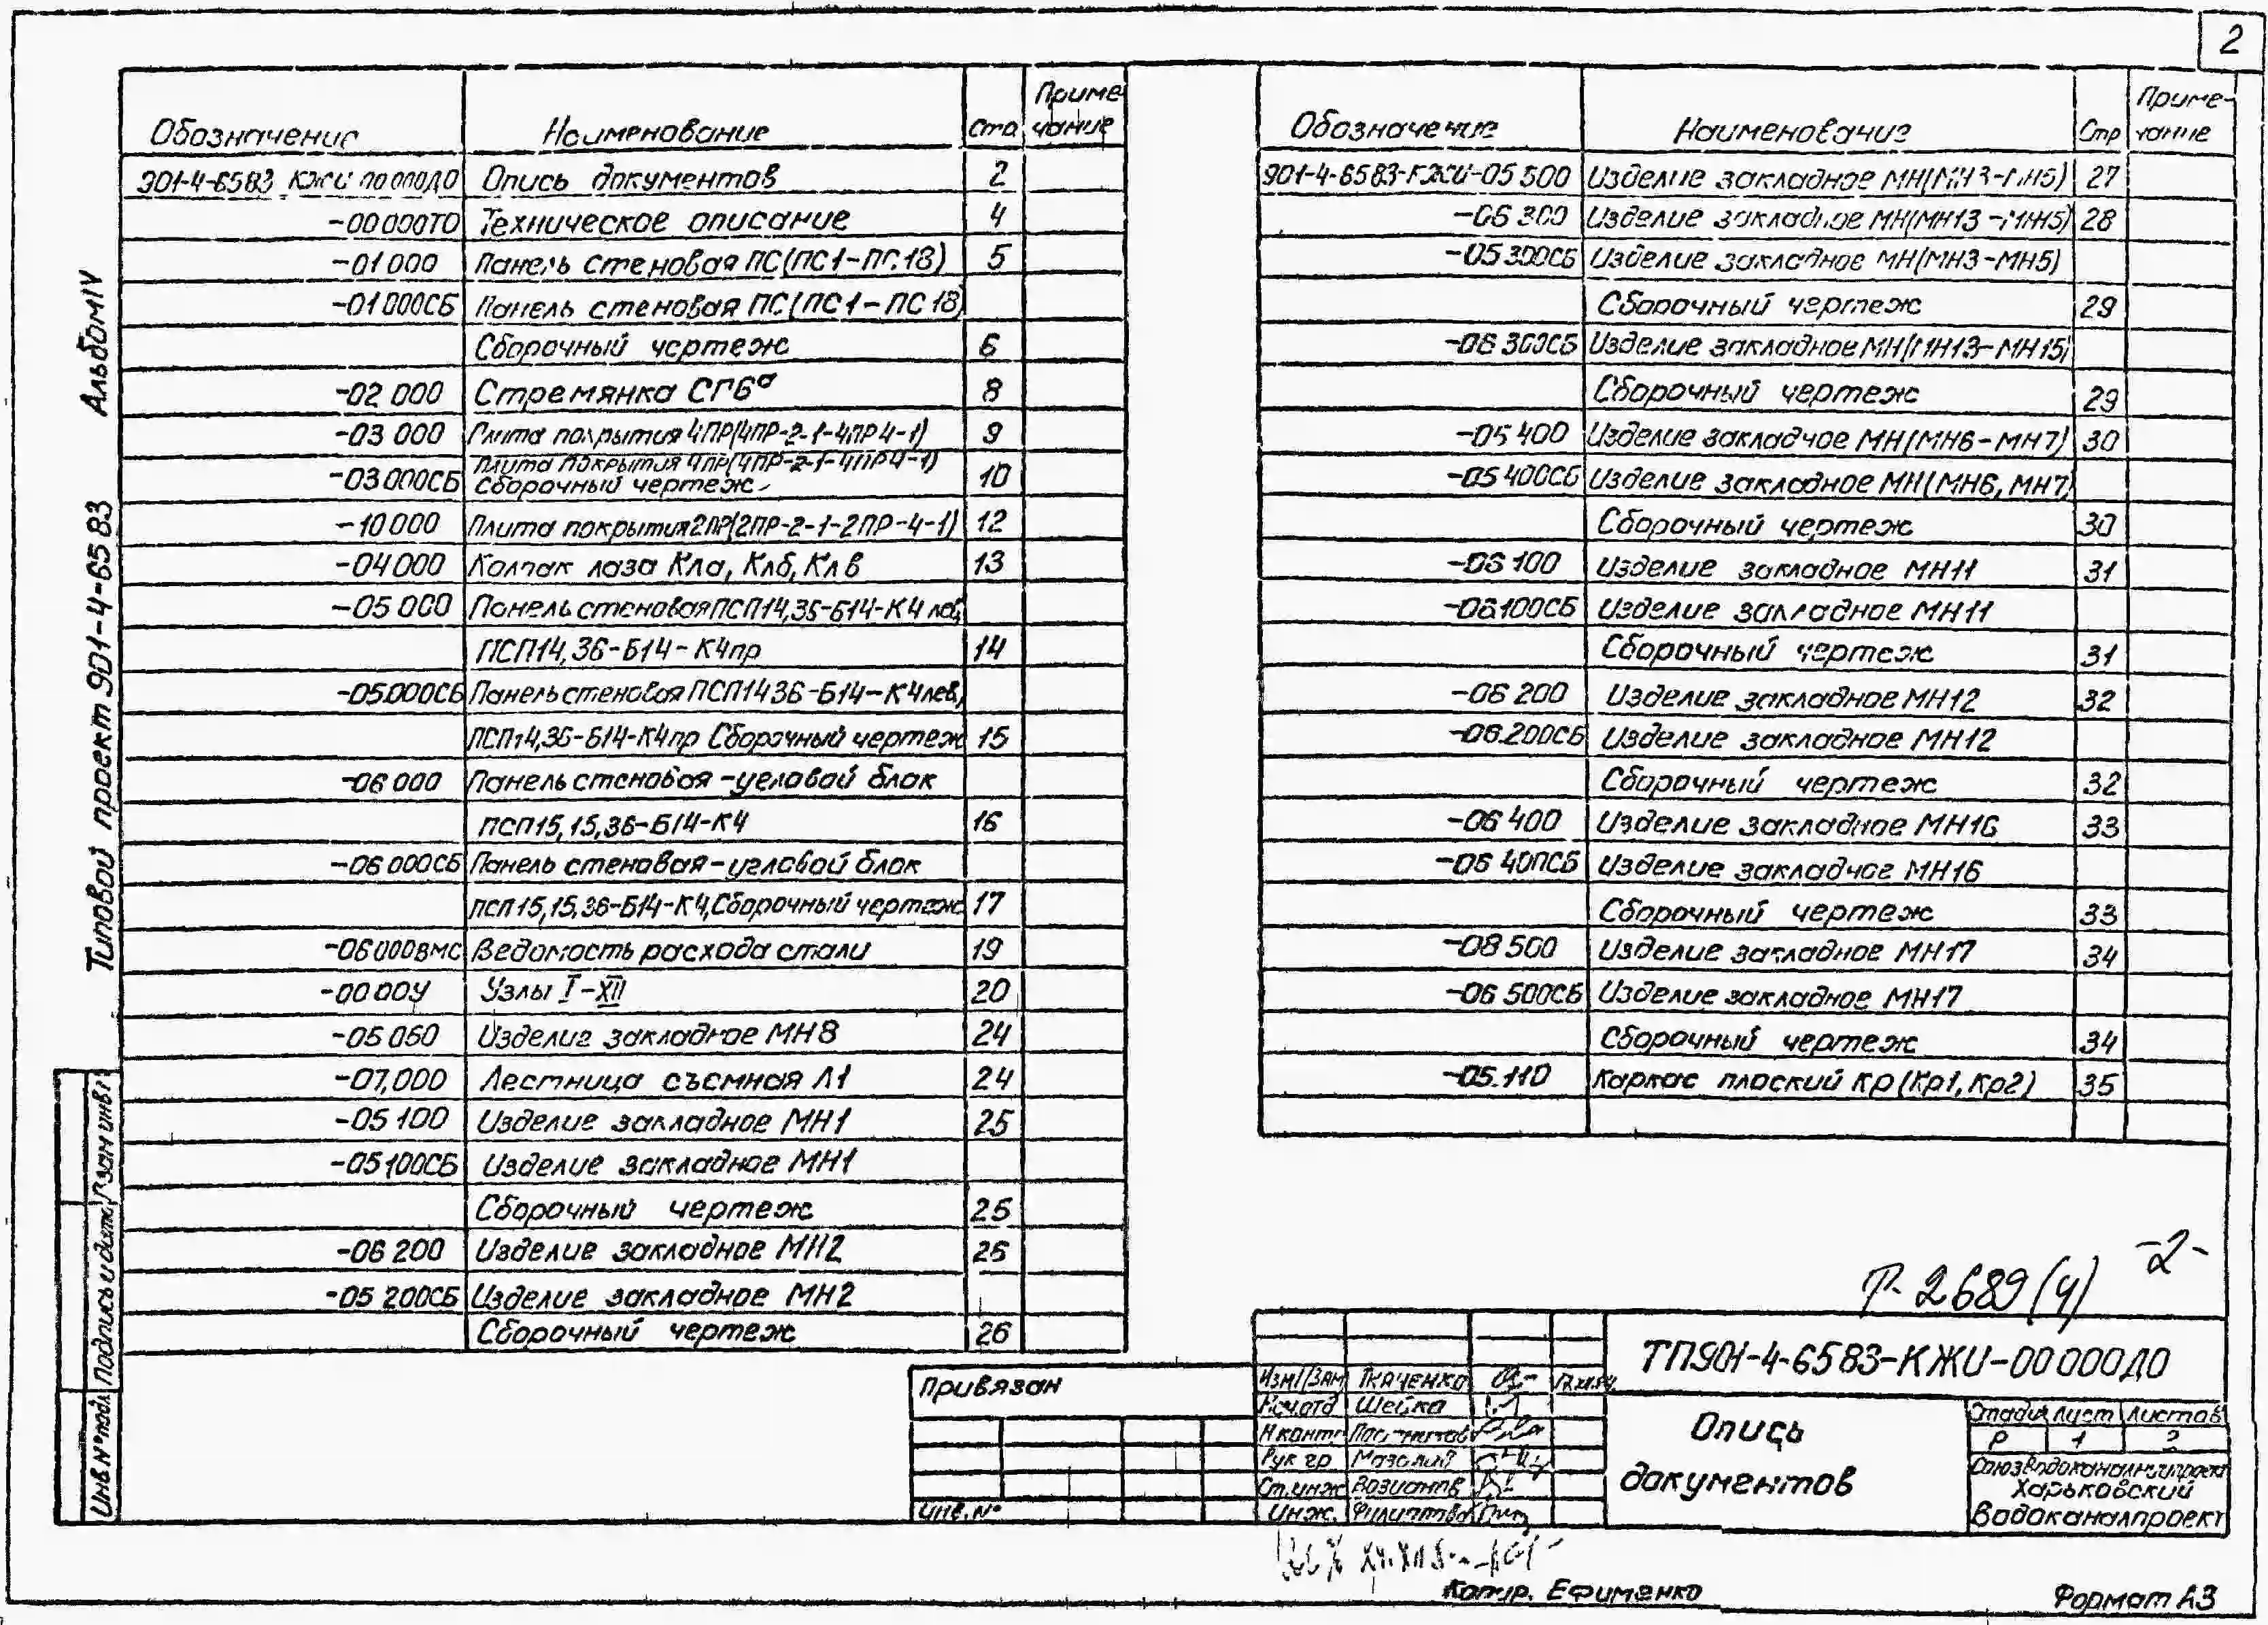 2
Альбом IV
Типовой проект 901-4-65 83
Обозначение Наименование Стр Приме-
чание
901-4-6583 КЖИ 00 000Д0 Опись документов 2
-00 000ТО Техническое описание 4
-01 000 Панель стеновая ПС(ПС1-ПС18) 5
-01 000СБ Панель стеновая ПС(ПС1-ПС18)
Сборочный чертеж 6
-02 000 Стремянка СГ6а 8
-03 000 Плита покрытия 4ПР(4ПР-2-1-4ПР4-1) 9
-03 000СБ Плита покрытия 4ПР(4ПР-2-1-4ПР4-1)
Сборочный чертеж 10
-10 000 Плита покрытия 2ПР(2ПР-2-1-2ПР-4-1) 12
-04 000 Колпак лаза Кла, Клб, Клв 13
-05 000 Панель стеновая ПСП14,36-Б14-К4 лев,
ПСП14,36-Б14-К4пр 14
-05.000СБ Панель стеновая ПСП14 36-Б14-К4лев,
ПСП14,36-Б14-К4пр Сборочный чертеж 15
-06 000 Панель стеновая-угловой блок
ПСП15,15,36-Б14-К4 16
-06 000СБ Панель стеновая-угловой блок
ПСП15,15,36-Б14-К4,Сборочный чертеж 17
-06 000ВМС Ведомость расхода стали 19
-00 00У Узлы I-XII 20
-05 050 Изделие закладное МН8 24
-07,000 Лестница съемная Л1 24
-05 100 Изделие закладное МН1 25
-05 100СБ Изделие закладное МН1
Сборочный чертеж 25
-06 200 Изделие закладное МН2 26
-05 200СБ Изделие закладное МН2
Сборочный чертеж 26
Обозначение Наименование Стр Приме-
чание
901-4-6583-КЖИ-05 500 Изделие закладное МН(МН3-МН5) 27
-06 300 Изделие закладное МН(МН13-МН5) 28
-05 300СБ Изделие закладное МН(МН3-МН5)
Сборочный чертеж 29
-06 300СБ Изделие закладное МН(МН13-МН15)
Сборочный чертеж 29
-05 400 Изделие закладное МН(МН6-МН7) 30
-05 400СБ Изделие закладное МН(МН6, МН7)
Сборочный чертеж 30
-06 100 Изделие закладное МН11 31
-06100СБ Изделие закладное МН11
Сборочный чертеж 31
-06 200 Изделие закладное МН12 32
-06.200СБ Изделие закладное МН12
Сборочный чертеж 32
-06 400 Изделие закладное МН16 33
-06 400СБ Изделие закладное МН16
Сборочный чертеж 33
-08 500 Изделие закладное МН17 34
-06 500СБ Изделие закладное МН17
Сборочный чертеж 34
-05.110 Каркас плоский Кр(Кр1, Кр2) 35
Инв № подл. Подпись и дата Взам инв
Р. 2689 (4) -2-
Привязан
Инв. №
Изм1/Зам Ткаченко
Нач.отд Шейка
Н контр
Рук гр Мазолий
Ст.инж Возианов
Инж. Филиппова
ТП901-4-6583-КЖИ-00 000Д0
Опись
документов
Стадия Лист Листов
Р 1 2
Союзводоканалниипроект
Харьковский
Водоканалпроект
Копир. Ефименко
Формат А3